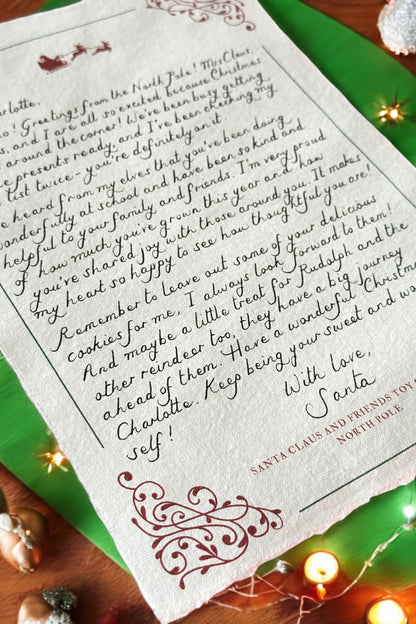 arlotte,
o! Greetings from the North Pole! Mrs Claus,
s, and I are all so excited because Christmas
s around the corner! We've been busy getting
e presents ready, and I've been checking my
list twice - you're definitely on it.
e heard from my elves that you've been doing
onderfully at school and have been so kind and
helpful to your family and friends. I'm very proud
of how much you've grown this year and how
you've shared joy with those around you. It makes
my heart so happy to see how thoughtful you are!
Remember to leave out some of your delicious
cookies for me, I always look forward to them!
And maybe a little treat for Rudolph and the
other reindeer too, they have a big journey
ahead of them. Have a wonderful Christmas
Charlotte. Keep being your sweet and wo
self!
With love,
Santa
SANTA CLAUS AND FRIENDS TOY
NORTH POLE